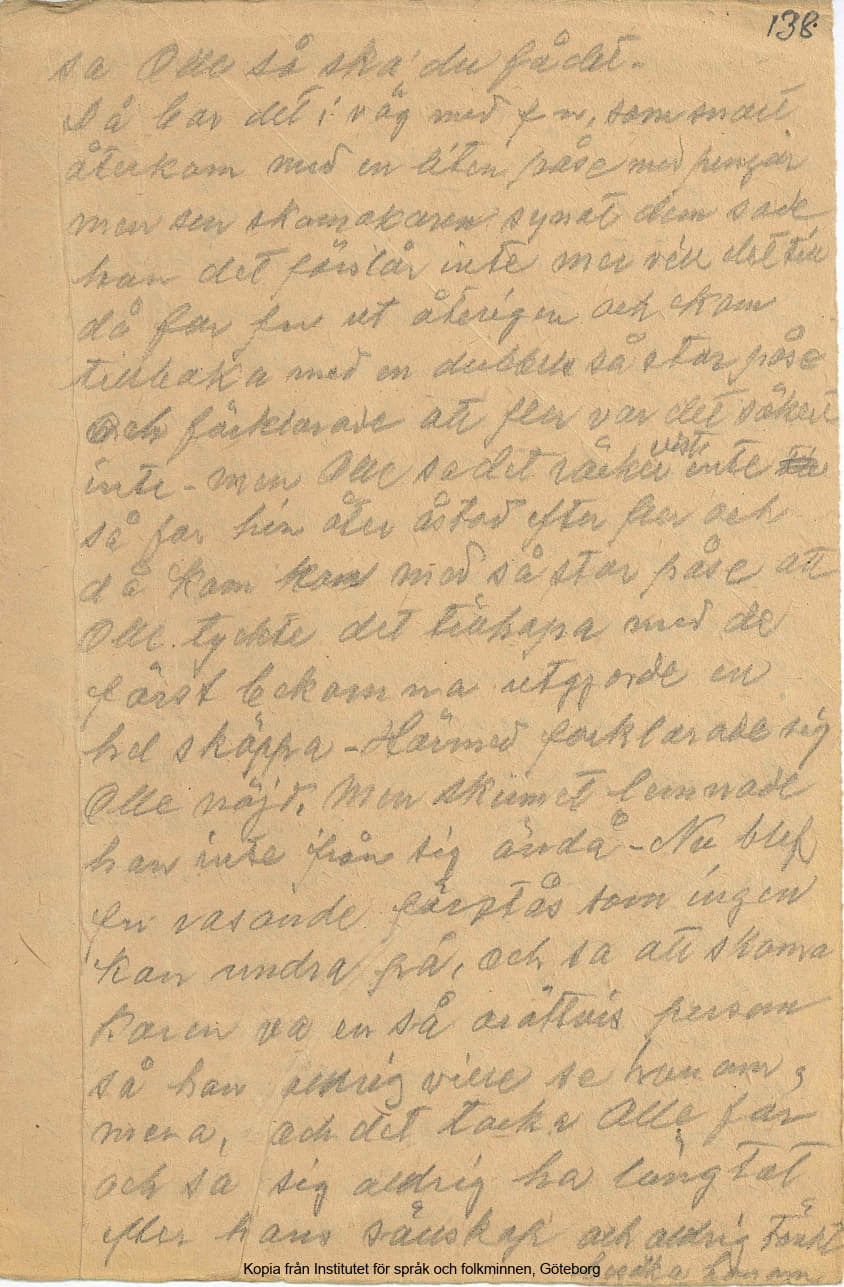 138.
sa Olle så ska' du få det.
Då bar det i väg med fn, som snart
återkom med en liten påse med pengar
men sen skomakaren synat dem sade
han det förslår inte mer vill det till
då far fn ut återigen och kom
tillbaka med en dubbelt så stor påse
och förklarade att fler var det säkert
inte - men Olle sa det räcker visst inte
så far hin åter åstad efter fler och
då kom han med så stor påse att
Olle tyckte det tillhopa med de
först bekomna utgjorde en
hel skäppa - Härmed förklarade sig
Olle nöjd. Men skinnet lemnade
han inte ifrån sig ändå - Nu blef
fn rasande förstås som ingen
kan undra på, och sa att skoma
karen va en så orättvis person
så han aldrig ville se honom
mera, och det tacka Olle för
och sa sig aldrig ha längtat
efter hans sällskap och aldrig tänkt
honom
Kopia från Institutet för språk och folkminnen, Göteborg